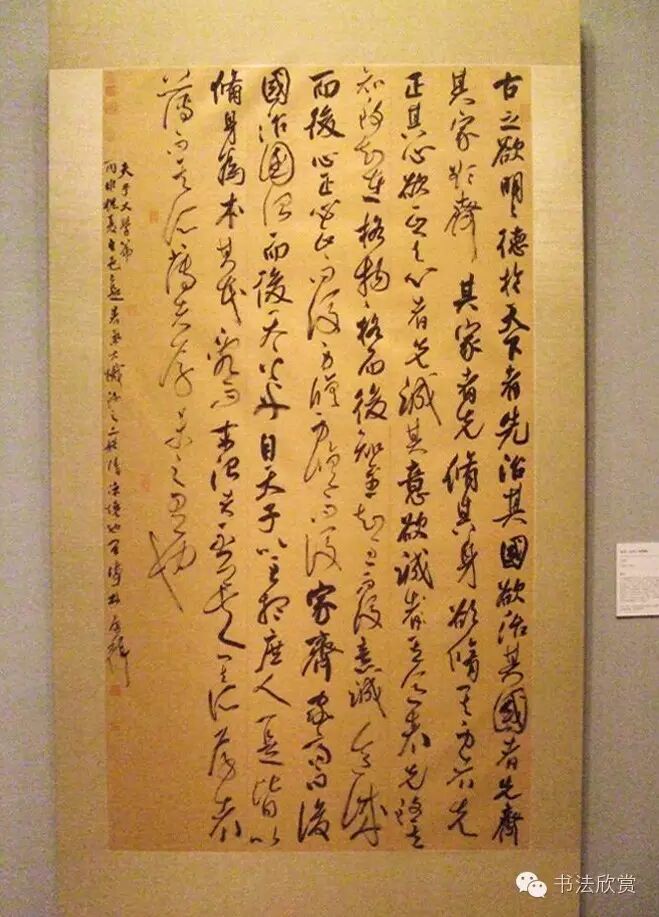 古之欲明〻德於天下者先治其國欲治其國者先齊
其家欲齊其家者先脩其身欲脩其身者先
正其心欲正其心者先誠其意欲誠其意者先致其
知致知在格物〻格而後知至知至而後意誠意誠
而後心正心正而後身脩身脩而後家齊家齊而後
國治國治而後天下平自天子以至於庶人一是皆以
脩身為本其本亂而末治者否矣其所厚者
薄而其所薄者厚未之有也
夫子大學篇
书法欣赏